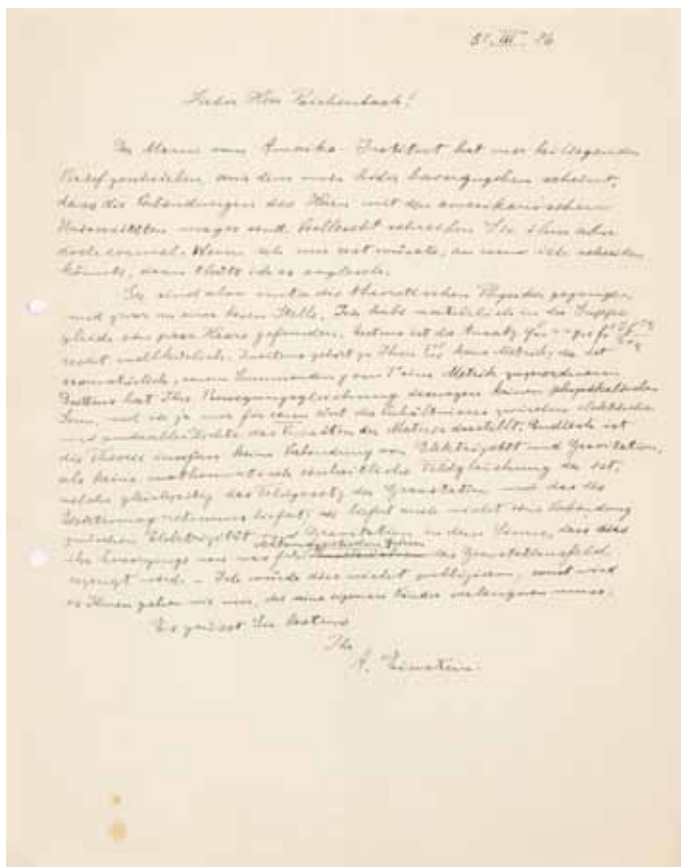 31. III. 26
Lieber Herr Reichenbach!
Der Mann vom Amerika-Institut hat mir beiliegenden
Brief geschrieben, aus dem mir leider hervorzugehen scheint,
dass die Verbindungen des Herrn mit den amerikanischen
Universitäten mager sind. Vielleicht schreiben Sie ihm aber
doch einmal. Wenn ich nur erst wüsste, an wen ich schreiben
könnte, dann thäte ich es sogleich.
Sie sind also unter die theoretischen Physiker gegangen,
und zwar an einer bösen Stelle. Ich habe natürlich in der Suppe
gleich ein paar Haare gefunden. Erstens ist der Ansatz
recht willkürlich. Zweitens gehört zu Ihrem keine Metrik; es ist
unnatürlich, einem Summanden eine Metrik zuzuordnen.
Drittens hat Ihre Bewegungsgleichung deswegen keinen physikalischen
Sinn, weil sie ja nur für einen Wert des Verhältnisses zwischen elektrischer
und Dichte das Verhalten der Materie darstellt. Endlich ist
die Theorie insofern keine Verbindung von Elektrizität und Gravitation,
als keine mathematisch einheitliche Feldgleichung da ist,
welche gleichzeitig das Feldgesetz der Gravitation und das des
Elektromagnetismus liefert; sie liefert auch nicht eine Verbindung
zwischen Elektrizität und Gravitation in dem Sinne, dass
das Gravitationsfeld
erzeugt wird. – Ich würde dies nicht publizieren, sonst wird
es Ihnen gehen wie mir, der seine eigenen Kinder verleugnen muss.
Es grüsst Sie bestens
Ihr
A. Einstein.